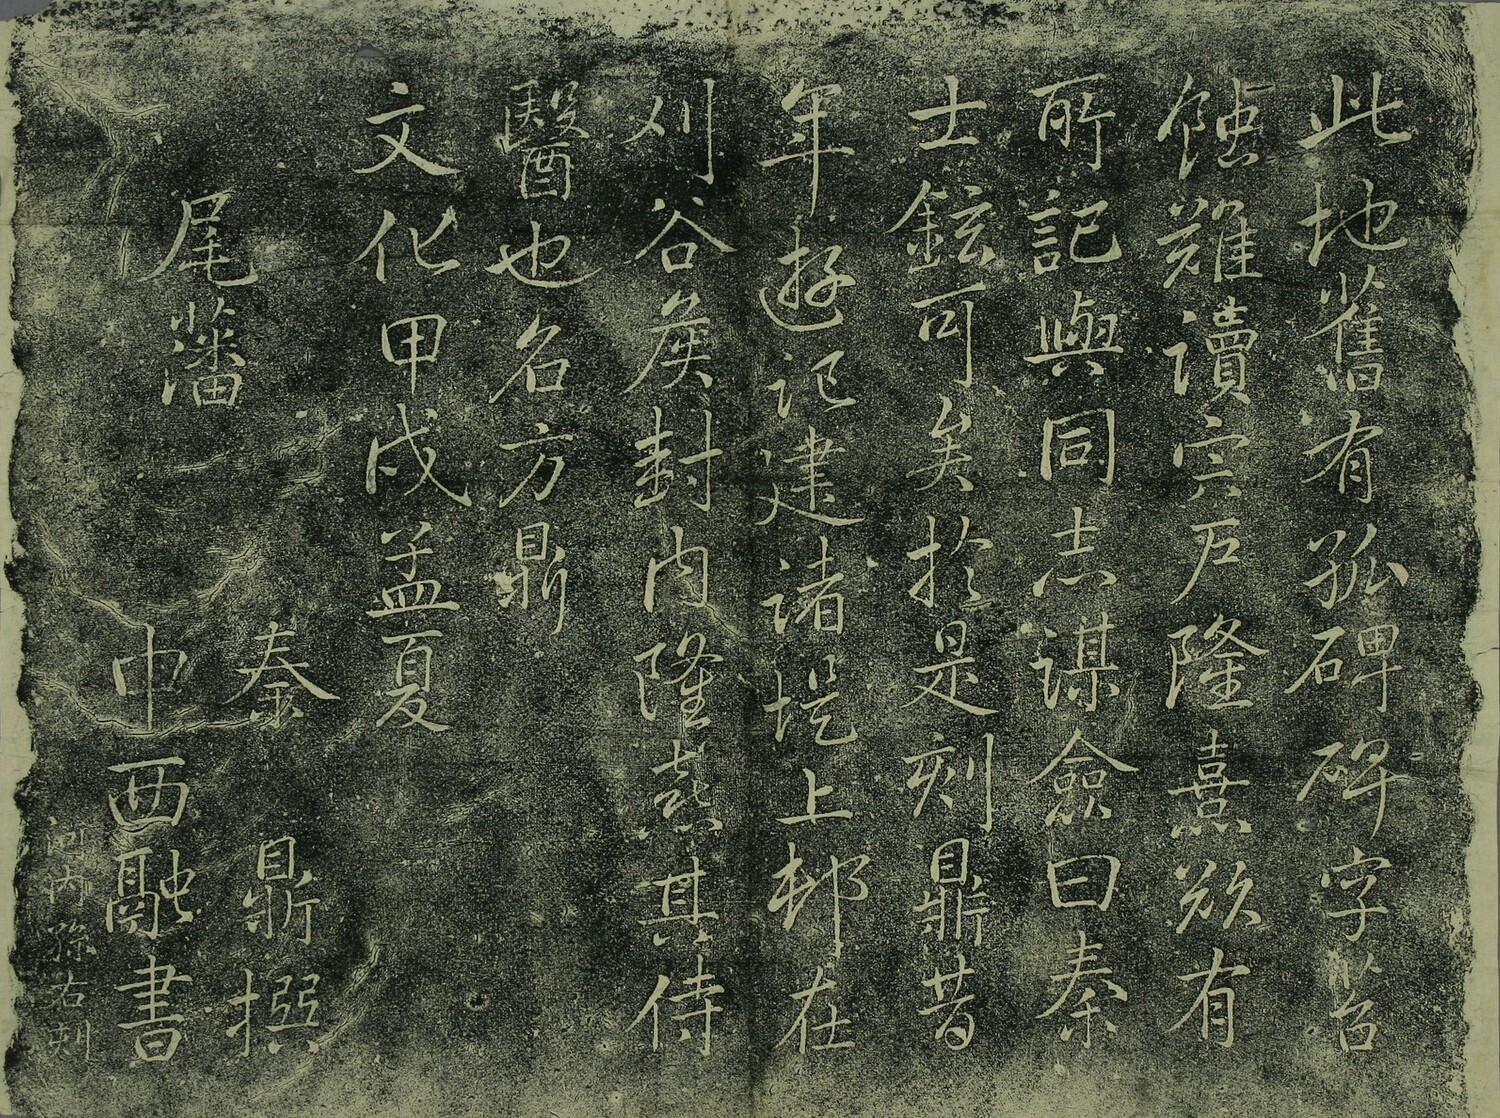 此地舊有孤碑碑字苔
蝕難讀宍戶隆熹欲有
所記與同志謀僉曰秦
士鉉可矣於是刻鼎昔
年遊記建諸堤上邨在
刈谷矦封内隆熹其侍
醫也名方鼎
文化甲戌孟夏
尾藩
秦鼎撰
中西融書
河内孫右刻